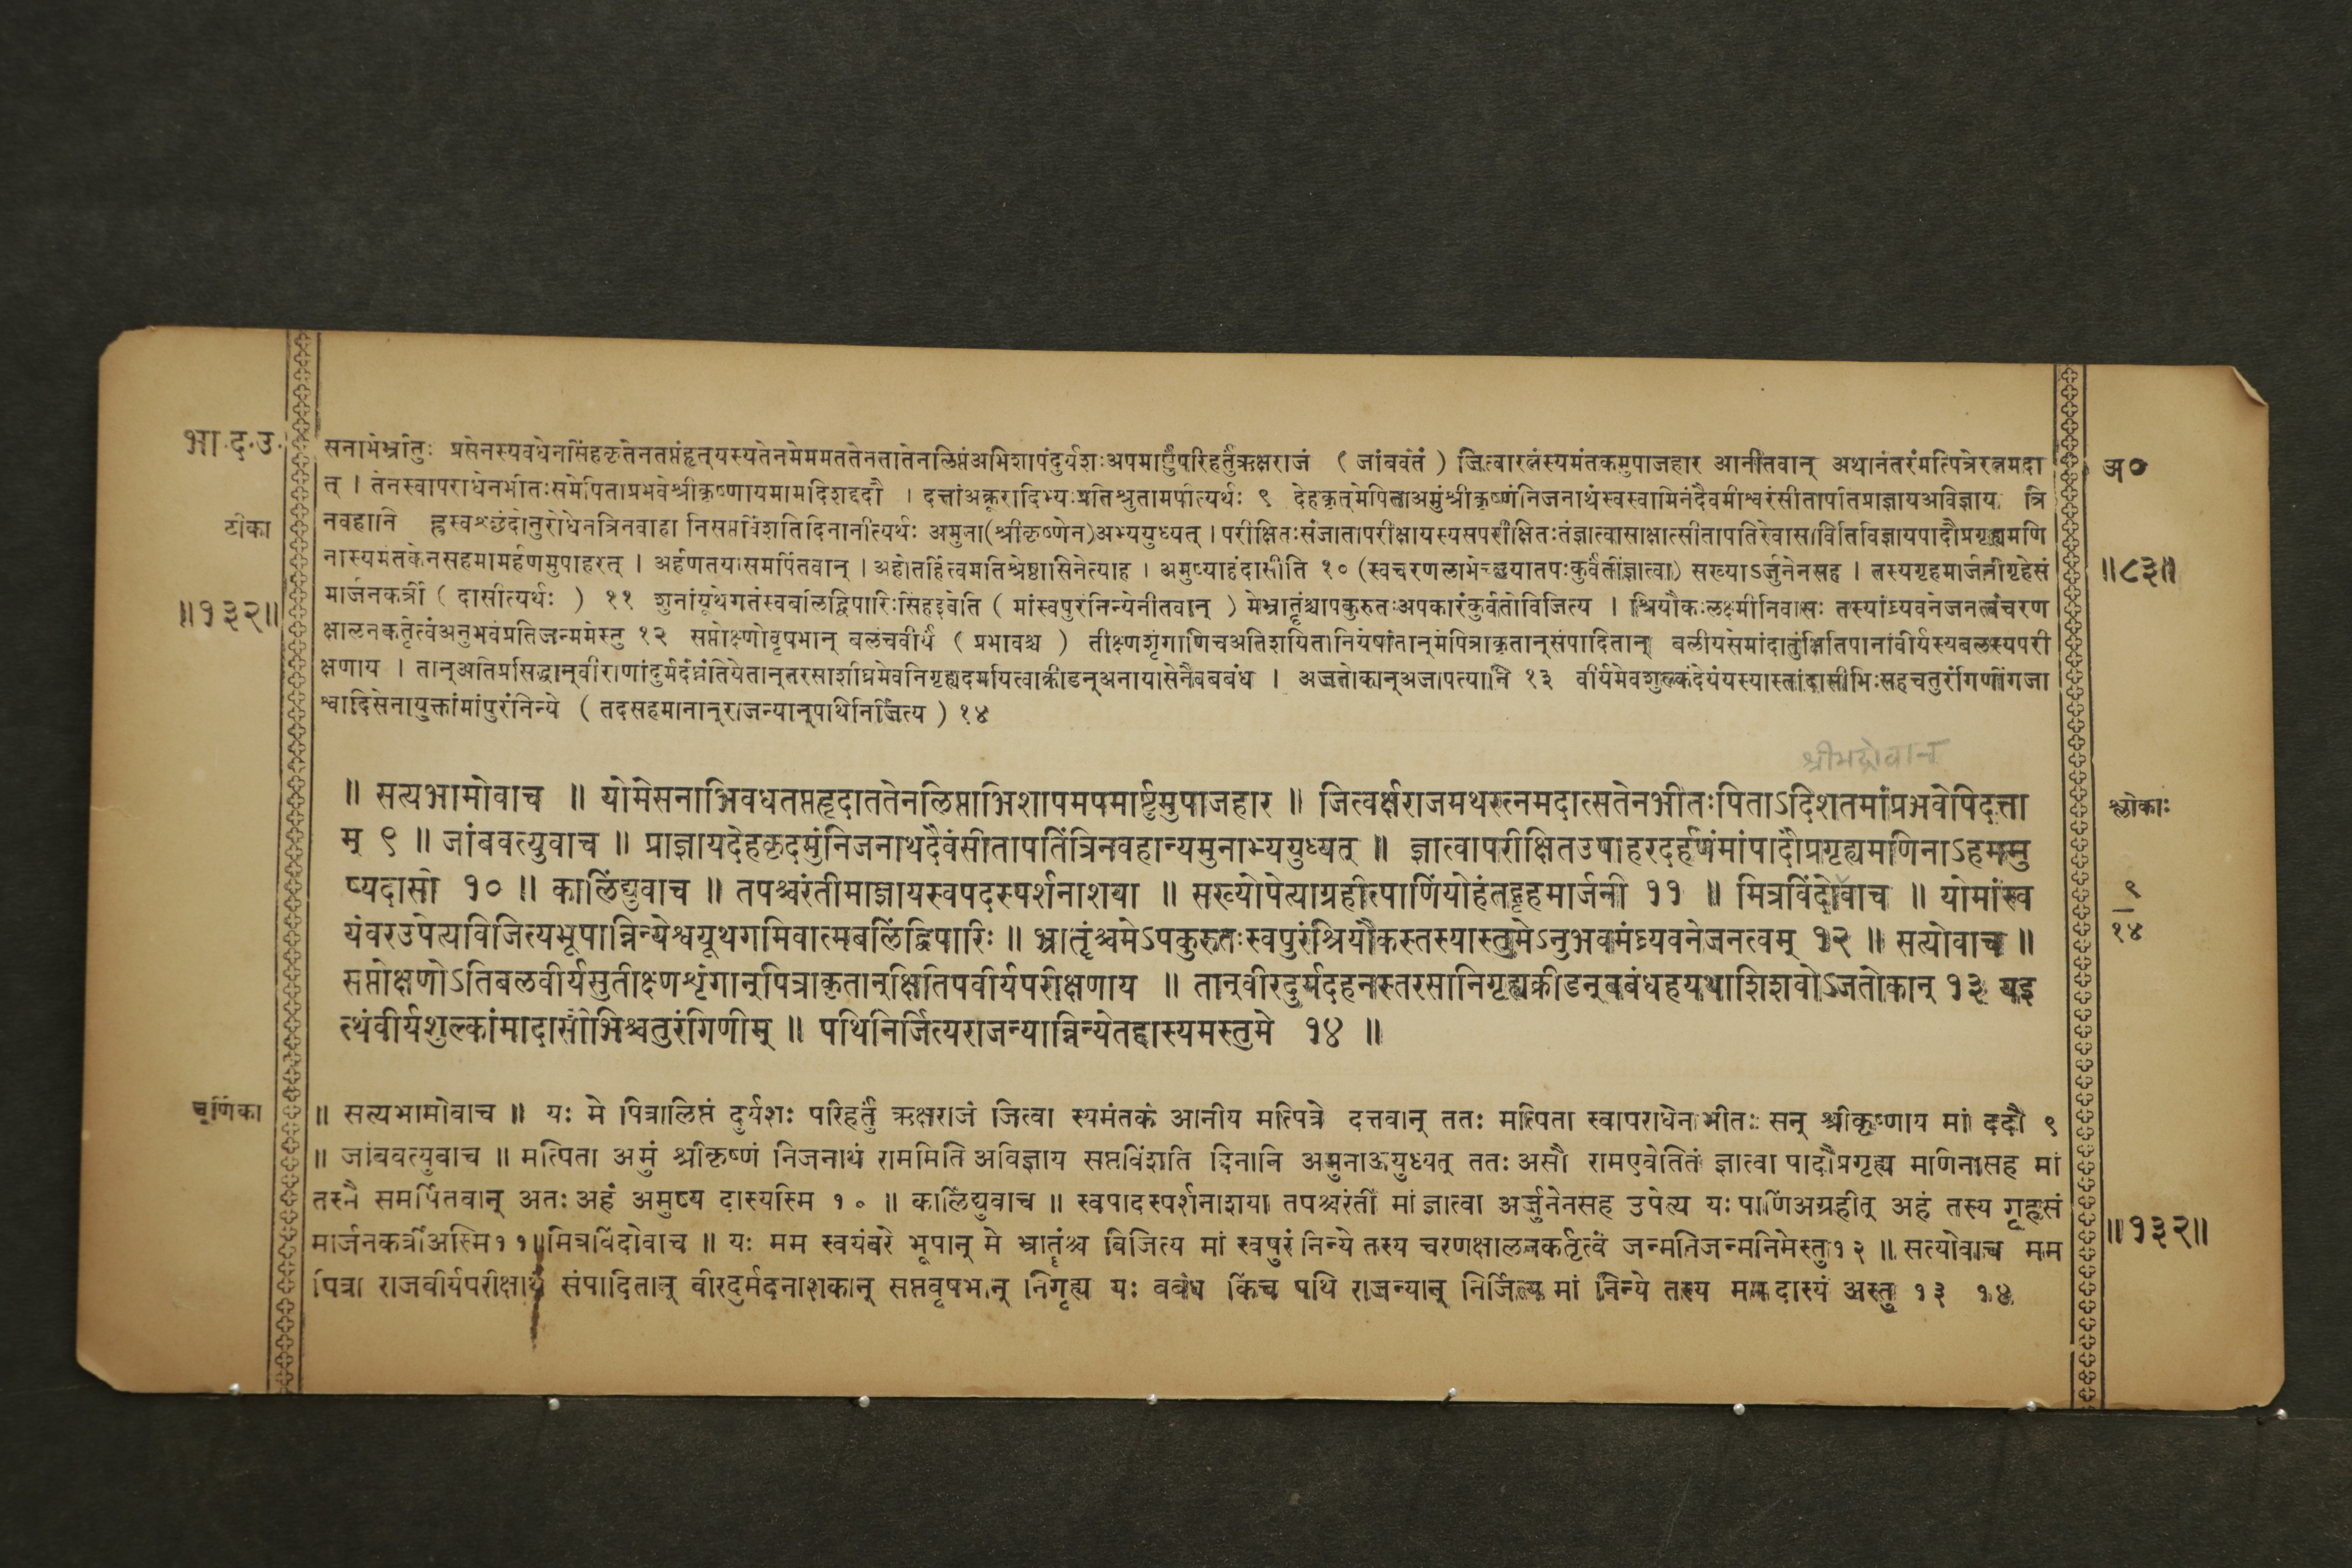 भा.द.उ.
सनाभेर्भ्रातुः प्रसेनस्यवधेनसिंहकृतेनतप्तंहृत्यस्यतेनमेममततेनतातेनलिप्तंअभिशापंदुर्यशःअपमार्ष्टुंपरिहर्तुंऋक्षराजं ( जांबवंतं ) जित्वारत्नंस्यमंतकमुपाजहार आनीतवान् अथानंतरंमत्पित्रेरत्नमदा
अ०
त् । तेनस्वापराधेनभीतःसमेपिताप्रभवेश्रीकृष्णायमामदिशद्ददौ । दत्तांअक्रूरादिभ्यःप्रतिश्रुतामपीत्यर्थः ९ देहकृत्मेपिताअमुंश्रीकृष्णंनिजनाथंस्वस्वामिनंदैवमीश्वरंसीतापतिंप्राज्ञायअविज्ञाय त्रि
टीका
नवहानि ह्रस्वश्छंदोनुरोधेनत्रिनवाहा निसप्तविंशतिदिनानीत्यर्थः अमुना(श्रीकृष्णेन)अभ्ययुध्यत् । परीक्षितःसंजातापरीक्षायस्यसपरीक्षितःतंज्ञात्वासाक्षात्सीतापतिरेवासावितिविज्ञायपादौप्रगृह्यमणि
नास्यमंतकेनसहमामर्हणमुपाहरत् । अर्हणतयासमर्पितवान् । अहोतर्हित्वमतिश्रेष्ठासिनेत्याह । अमुष्याहंदासीति १० (स्वचरणलाभेच्छयातपःकुर्वतींज्ञात्वा) सख्याऽर्जुनेनसह । तस्यगृहमार्जनीगृहेसं
॥८३॥
॥१३२॥
मार्जनकर्त्री ( दासीत्यर्थः ) ११ शुनांयूथेगतंस्वबलिंद्विपारिःसिंहइवेति ( मांस्वपुरंनिन्येनीतवान् ) मेभ्रातॄंश्चापकुरुतःअपकारंकुर्वतोविजित्य । श्रियौकःलक्ष्मीनिवासः तस्यांघ्र्यवनेजनत्वंचरण
क्षालनकर्तृत्वंअनुभवंप्रतिजन्ममेस्तु १२ सप्तोक्ष्णोवृषभान् बलंचवीर्यं ( प्रभावश्च ) तीक्ष्णशृंगाणिचअतिशयितानियेषांतान्मेपित्राकृतान्संपादितान् बलीयसेमांदातुंक्षितिपानांवीर्यस्यबलस्यपरी
क्षणाय । तान्अतिप्रसिद्धान्वीराणांदुर्मदंघ्नंतियेतान्तरसाशीघ्रमेवनिगृह्यदमयित्वाक्रीडन्अनायासेनैवबबंध । अजतोकान्अजापत्यानि १३ वीर्यमेवशुल्कंदेयंयस्यास्तांदासीभिःसहचतुरंगिणींगजा
श्वादिसेनायुक्तांमांपुरंनिन्ये ( तदसहमानान्राजन्यान्पथिनिर्जित्य ) १४
श्रीभद्रोवाच
॥ सत्यभामोवाच ॥ योमेसनाभिवधतप्तहृदाततेनलिप्ताभिशापमपमार्ष्टुमुपाजहार ॥ जित्वर्क्षराजमथरत्नमदात्सतेनभीतःपिताऽदिशतमांप्रभवेपिदत्ता
श्लोकाः
म् ९ ॥ जांबवत्युवाच ॥ प्राज्ञायदेहकृदमुंनिजनाथदैवंसीतापतिंत्रिनवहान्यमुनाभ्ययुध्यत् ॥ ज्ञात्वापरीक्षितउपाहरदर्हणंमांपादौप्रगृह्यमणिनाऽहममु
ष्यदासी १० ॥ कालिंद्युवाच ॥ तपश्चरंतीमाज्ञायस्वपदस्पर्शनाशया ॥ सख्योपेत्याग्रहीत्पाणिंयोहंतद्गृहमार्जनी ११ ॥ मित्रविंदोवाच ॥ योमांस्व
९
१४
यंवरउपेत्यविजित्यभूपान्निन्येश्वयूथगमिवात्मबलिंद्विपारिः ॥ भ्रातॄंश्चमेऽपकुरुतःस्वपुरंश्रियौकस्तस्यास्तुमेऽनुभवमंघ्र्यवनेजनत्वम् १२ ॥ सत्योवाच ॥
सप्तोक्षणोऽतिबलवीर्यसुतीक्ष्णशृंगान्पित्राकृतान्क्षितिपवीर्यपरीक्षणाय ॥ तान्वीरदुर्मदहनस्तरसानिगृह्यक्रीडन्बबंधहयथाशिशवोऽजतोकान् १३ यइ
त्थंवीर्यशुल्कांमादासीभिश्चतुरंगिणीम् ॥ पथिनिर्जित्यराजन्यान्निन्येतद्दास्यमस्तुमे १४ ॥
चूर्णिका
॥ सत्यभामोवाच ॥ यः मे पित्रालिप्तं दुर्यशः परिहर्तुं ऋक्षराजं जित्वा स्यमंतकं आनीय मत्पित्रे दत्तवान् ततः मत्पिता स्वापराधेन भीतः सन् श्रीकृष्णाय मां ददौ ९
॥ जांबवत्युवाच ॥ मत्पिता अमुं श्रीकृष्णं निजनाथं राममिति अविज्ञाय सप्तविंशति दिनानि अमुनाऽयुध्यत् ततः असौ रामएवेतितं ज्ञात्वा पादौप्रगृह्य मणिनासह मां
तस्मै समर्पितवान् अतः अहं अमुष्य दास्यस्मि १० ॥ कालिंद्युवाच ॥ स्वपादस्पर्शनाशया तपश्चरंतीं मां ज्ञात्वा अर्जुनेनसह उपेत्य यः पाणिंअग्रहीत् अहं तस्य गृहसं
मार्जनकर्त्रीअस्मि११॥मित्रविंदोवाच ॥ यः मम स्वयंबरे भूपान् मे भ्रातॄंश्च विजित्य मां स्वपुरं निन्ये तस्य चरणक्षालनकर्तृत्वं जन्मनिजन्मनिमेस्तु१२ ॥ सत्योवाच मम
॥१३२॥
पित्रा राजवीर्यपरीक्षार्थं संपादितान् वीरदुर्मदनाशकान् सप्तवृषभान् निगृह्य यः बबंध किंच पथि राजन्यान् निर्जित्य मां निन्ये तस्य मम दास्यं अस्तु १३ १४